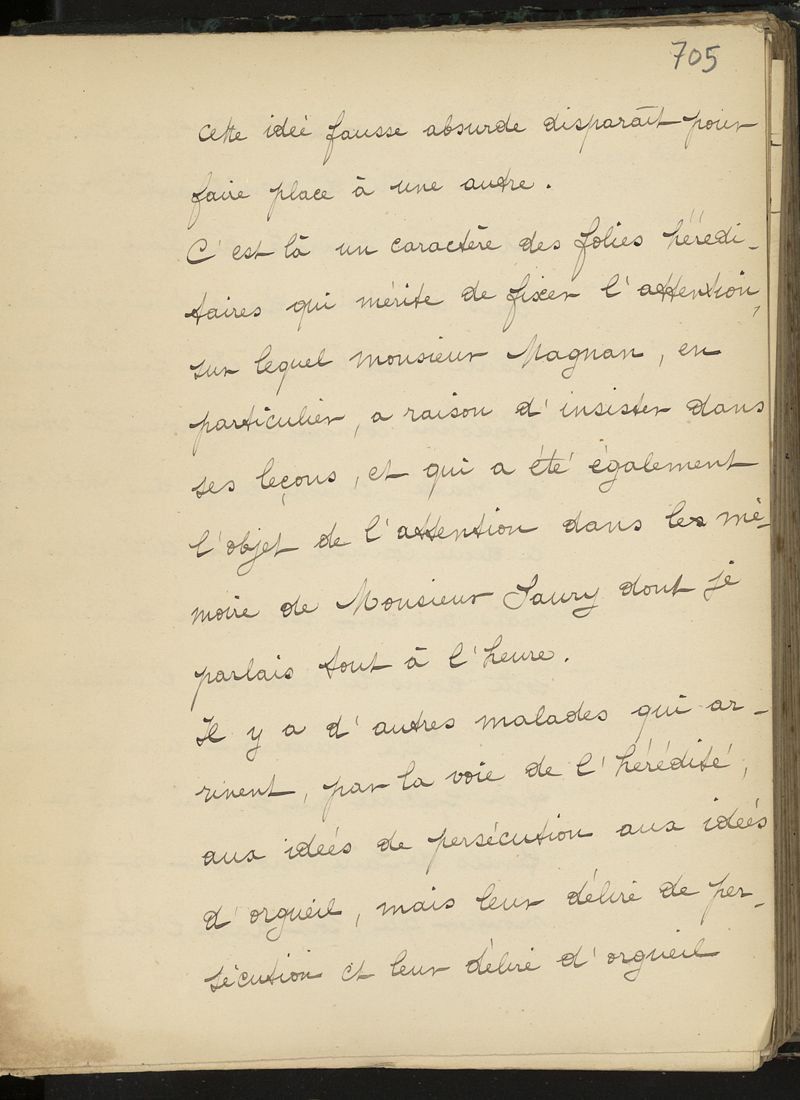 705
cette idée fausse absurde disparaît pour
faire place à une autre.
C'est là un caractère des folies hérédi-
taires qui mérite de fixer l'attention,
sur lequel monsieur Magnan, en
particulier, a raison d'insister dans
ses leçons, et qui a été également
l'objet de l'attention dans les mé-
moire de Monsieur Saury dont je
parlais tout à l'heure.
Il y a d'autres malades qui ar-
rivent, par la voie de l'hérédité,
aux idées de persécution aux idées
d'orgueil, mais leur délire de per-
sécution et leur délire d'orgueil